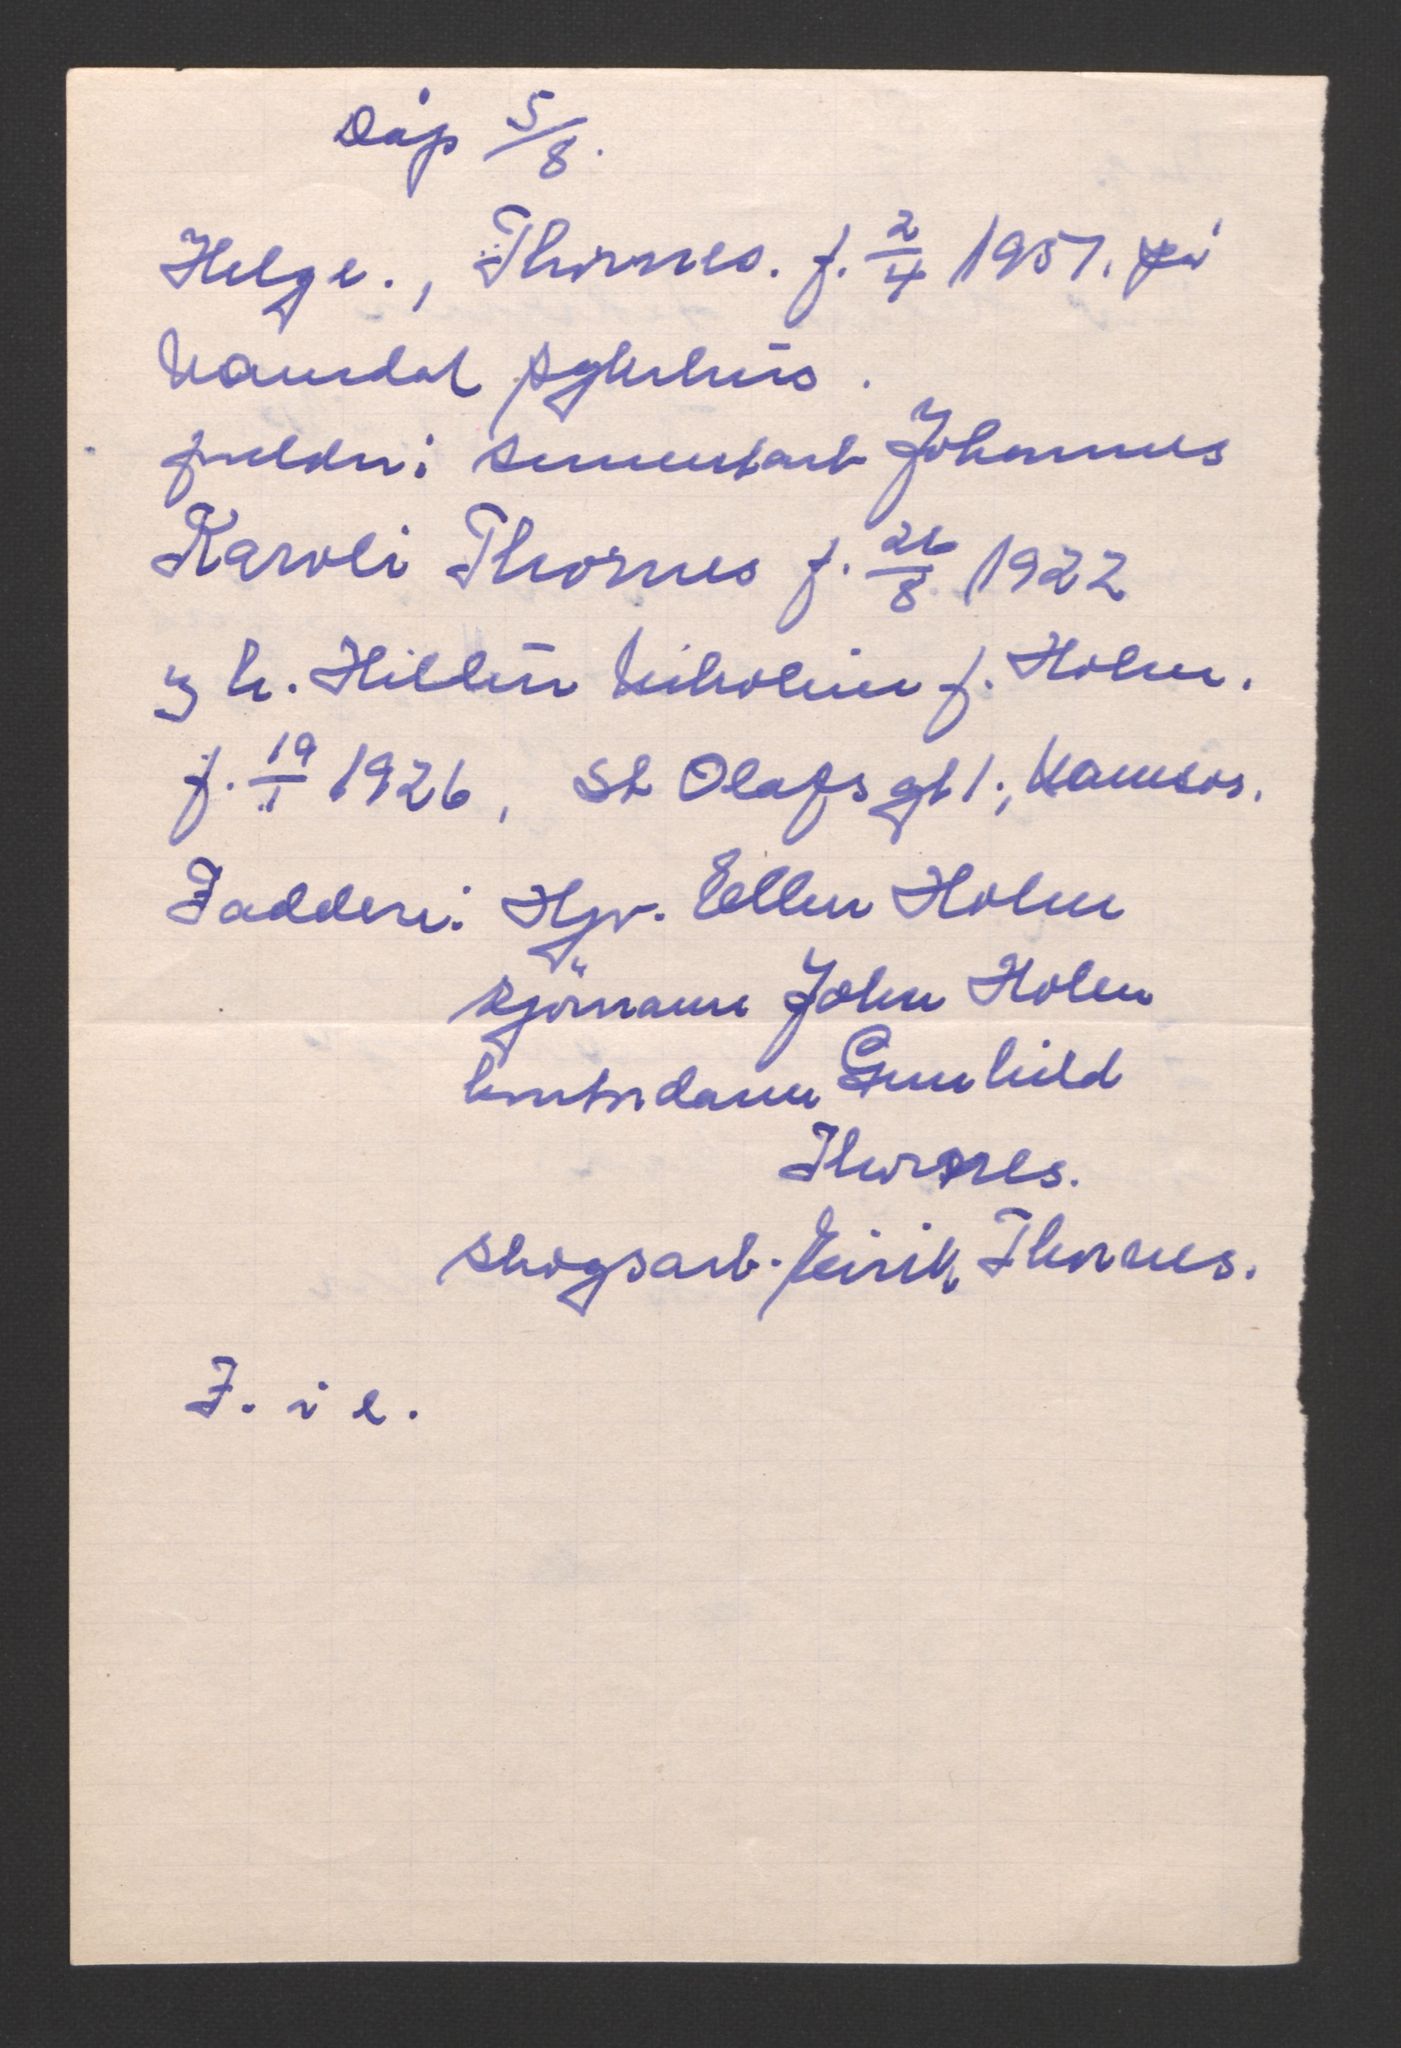 Dåp 5/8.
Helge., Thornes. f. 2/4 1951. på
Namdal sykehus.
foreldre: sementarb Johannes
Karoli Thornes f. 26/8 1922
og h. Hildur Nikoline f. Holm.
f. 19/1 1926, St Olafs gt 1., Namsos.
Faddere: Hjv. Ellen Holm
sjömann John Holm
kontordame Gunhild
Thornes.
skogsarb. Eirik Thornes.
F. i e.